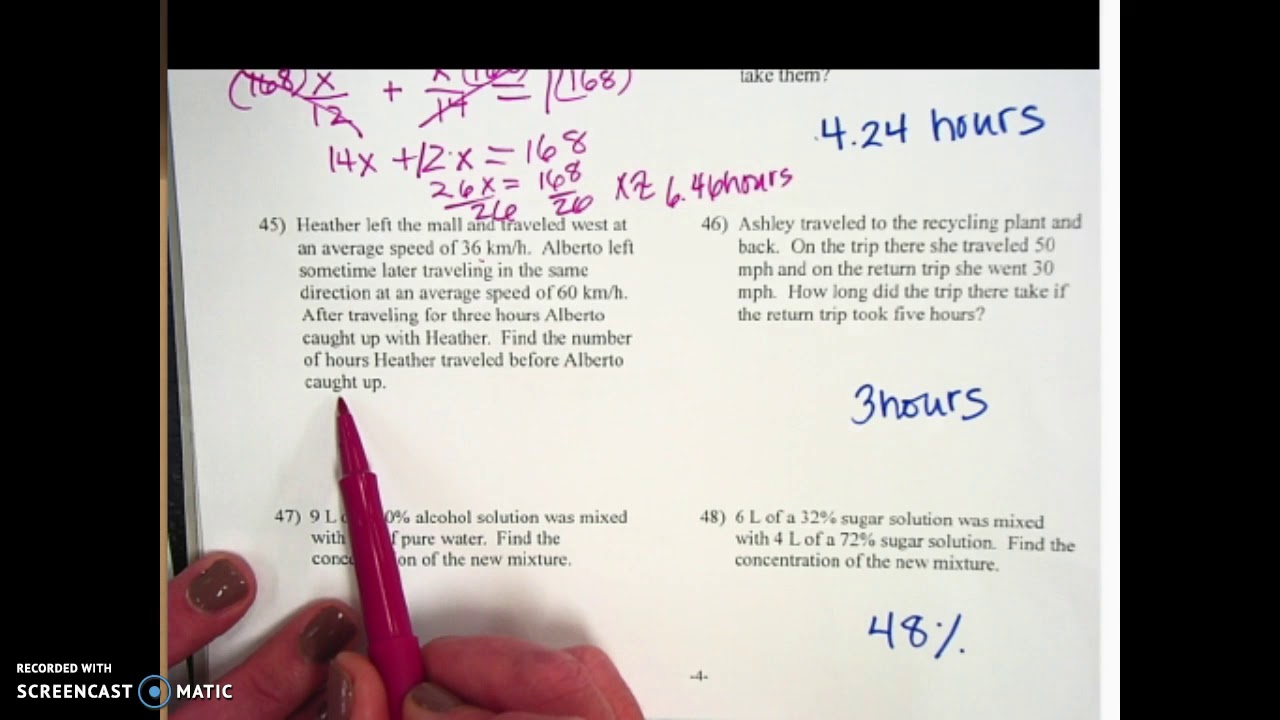 take them?
(168) x/12 + x/14 = 1(168)
4.24 hours
14x + 12x = 168
26x/26 = 168/26 x ≈ 6.46 hours
45) Heather left the mall and traveled west at
an average speed of 36 km/h. Alberto left
sometime later traveling in the same
direction at an average speed of 60 km/h.
After traveling for three hours Alberto
caught up with Heather. Find the number
of hours Heather traveled before Alberto
caught up.
46) Ashley traveled to the recycling plant and
back. On the trip there she traveled 50
mph and on the return trip she went 30
mph. How long did the trip there take if
the return trip took five hours?
3 hours
47) 9 L 0% alcohol solution was mixed
with pure water. Find the
of the new mixture.
48) 6 L of a 32% sugar solution was mixed
with 4 L of a 72% sugar solution. Find the
concentration of the new mixture.
48%
-4-
RECORDED WITH
SCREENCAST MATIC